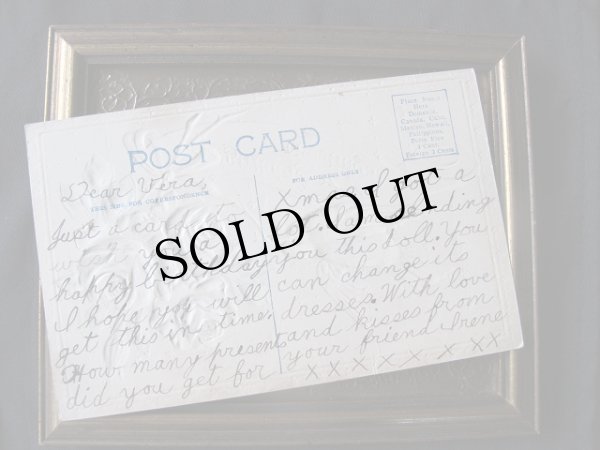 POST CARD
Place Stamp
Here
Domestic
Canada, Cuba
Mexico, Hawaii,
Philippines,
Porto Rico
1 Cent
Foreign 2 Cents
THIS SIDE FOR CORRESPONDENCE
FOR ADDRESS ONLY
Dear Vera,
Just a card to
wish you a
happy birthday
I hope you will
get this in time.
How many presents
did you get for
Xmas I got a
lot. I am sending
you this doll. You
can change its
dresses. With love
and kisses from
your friend Irene
x x x x x x x
SOLD OUT